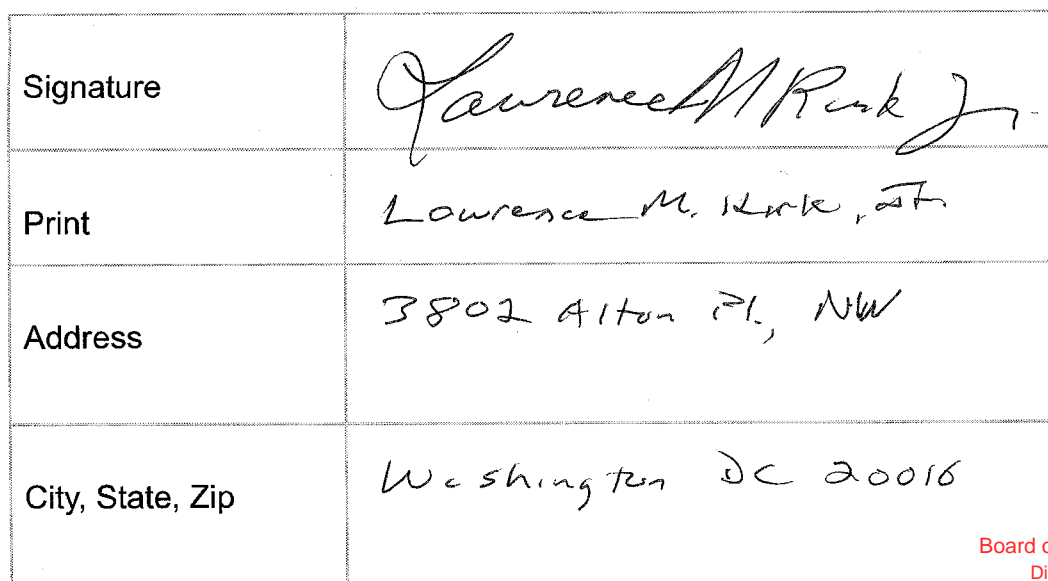 Signature Lawrence M Kirk Jr.
Print Lawrence M. Kirk, Jr.
Address 3802 Alton Pl., NW
City, State, Zip Washington DC 20016
Board